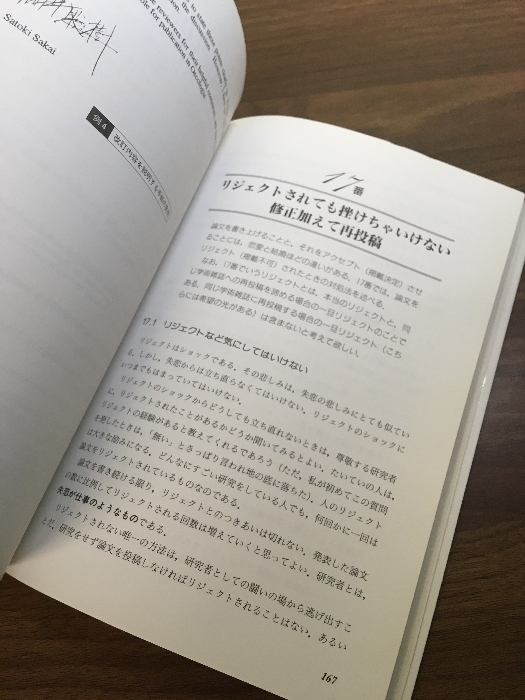 to state their points
the discussion. However
the reviewers for their helpful
ble for publication in Oncologia
Satoki Sakai
例4
改訂内容を説明する
17番
リジェクトされても挫けちゃいけない
修正加えて再投稿
論文を書き上げることと，それをアクセプト（掲載決定）させ
ることには，恋愛と結婚ほどの違いがある．17番では，論文を
リジェクト（掲載不可）されたときの対処法を述べる．
なお，17番でいうリジェクトとは，本当のリジェクトと，同
じ学術雑誌への再投稿を諦める場合の一旦リジェクトのことで
ある．同じ学術雑誌に再投稿する場合の一旦リジェクト（こち
らには希望の光がある）は含まないと考えて欲しい．
17.1 リジェクトなど気にしてはいけない
リジェクトはショックである．その悲しみは，失恋の悲しみにとても似てい
る．しかし，失恋からは立ち直らなくてはいけない．リジェクトのショックに
いつまでもはまっていてはいけない．
リジェクトのショックからどうしても立ち直れないときは，尊敬する研究者
に，リジェクトされたことがあるかどうか聞いてみるとよい．たいていの人は，
リジェクトの経験があると教えてくれるであろう（ただ，私が初めてこの質問
を発したときは，「無い」とさっぱり言われ地の底に落ちた）．人のリジェクト
は大きな励みになる．どんなにすごい研究をしている人でも，何回かに一回は
論文をリジェクトされているものなのである．
論文を書き続ける限り，リジェクトとのつきあいは切れない．発表した論文
の数に比例してリジェクトされる回数は増えていくと思ってよい．研究者とは，
失恋が仕事のようなものである．
リジェクトされない唯一の方法は，研究者としての闘いの場から逃げ出すこ
とだ．研究をせず論文を投稿しなければリジェクトされることはない．あるい
167